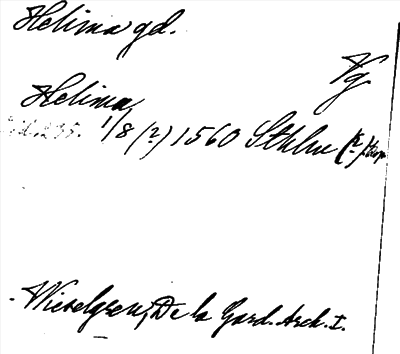 Helima gd.
Vg
Helima,
1/8 (?) 1560 Sthlm
Wieselgren, De la Gard. Arch. I.